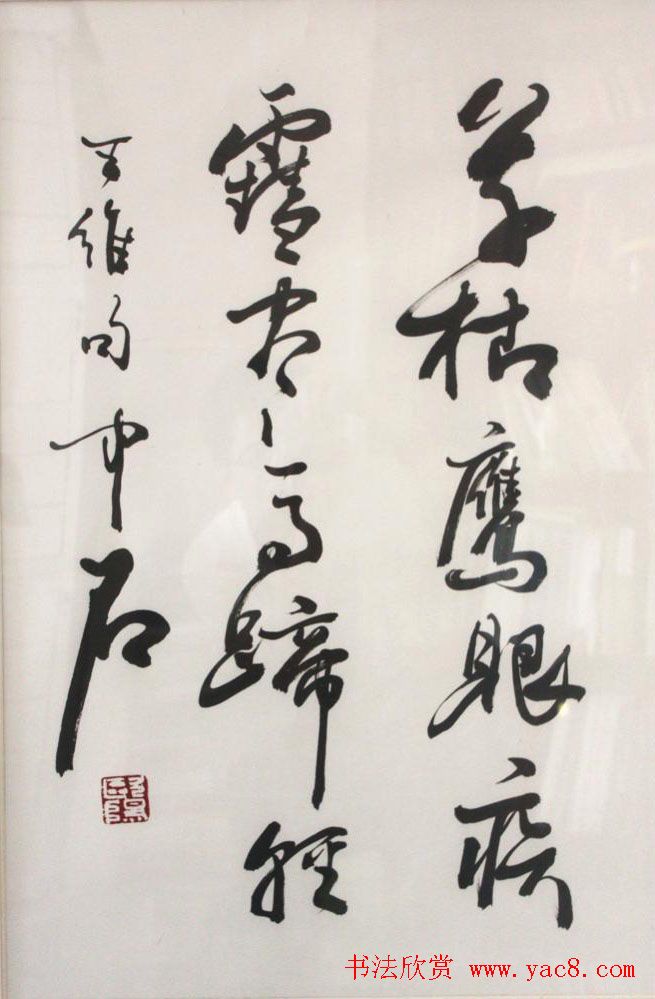 草枯鹰眼疾
雪尽马蹄轻
王维句 中石
书法欣赏 www.yac8.com